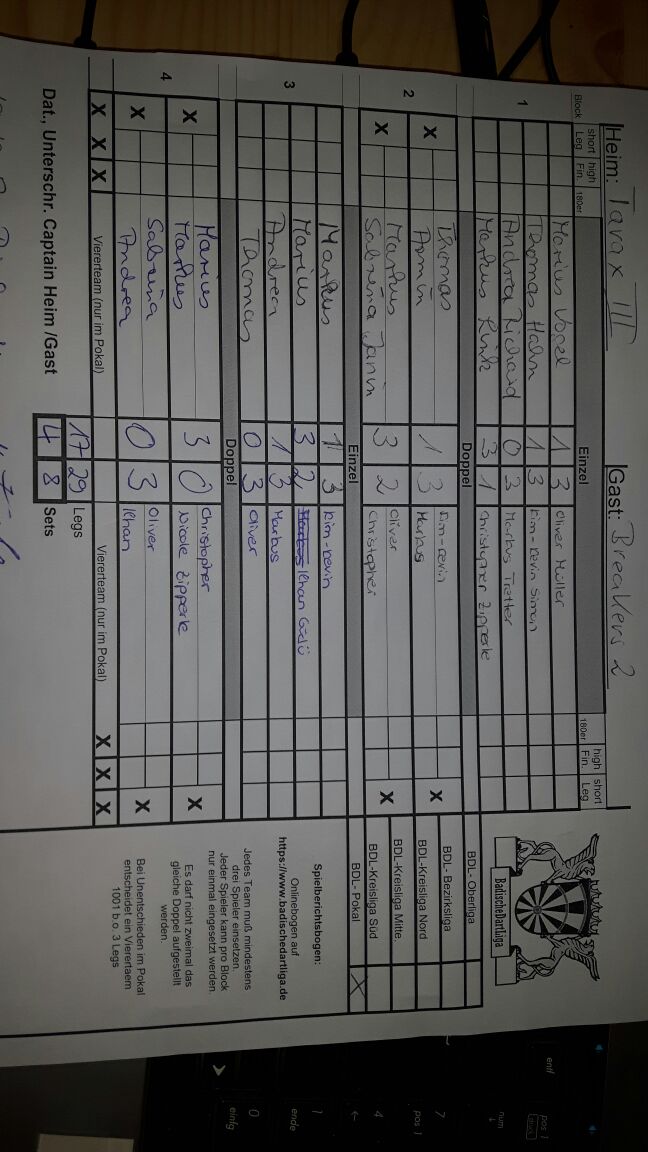 Heim: Tarax III Gast: Breakers 2
Block short Leg high Fin. 180er Einzel 180er high Fin. short Leg
1
Marius Vogel 1 3 Oliver Müller
Thomas Hahn 1 3 Kim-Kevin Simon
Andrea Richard 0 3 Markus Tretter
Markus Rink 3 1 Christopher Zipperle
Doppel
2
Thomas 1 3 Kim-Kevin
X Armin Markus X
Markus 3 2 Oliver
X Sabrina Janin Christopher X
Einzel
3
Markus 1 3 Kim-Kevin
Marius 3 2 Markus Ilhan Güdü
Andrea 1 3 Markus
Thomas 0 3 Oliver
Doppel
4
Marius 3 0 Christopher
X Markus Nicole Zipperle X
Sabrina 0 3 Oliver
X Andrea Ilhan X
X X X Viererteam (nur im Pokal) Viererteam (nur im Pokal) X X X
17 29 Legs
Dat., Unterschr. Captain Heim /Gast 4 8 Sets
BadischeDartLiga
BDL- Oberliga
BDL- Bezirksliga
BDL-Kreisliga Nord
BDL-Kreisliga Mitte
BDL-Kreisliga Süd
BDL- Pokal X
Spielberichtsbogen:
Onlinebogen auf
https://www.badischedartliga.de
Jedes Team muß mindestens
drei Spieler einsetzen.
Jeder Spieler kann pro Block
nur einmal eingesetzt werden.
Es darf nicht zweimal das
gleiche Doppel aufgestellt
werden.
Bei Unentschieden im Pokal
entscheidet ein Viererteam
1001 b.o. 3 Legs
entf
pos 1
druck
num
7
pos 1
4
1
ende
0
einfg